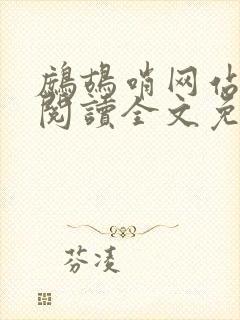 鷓鴣哨网估
閱讀全文免
芬凌